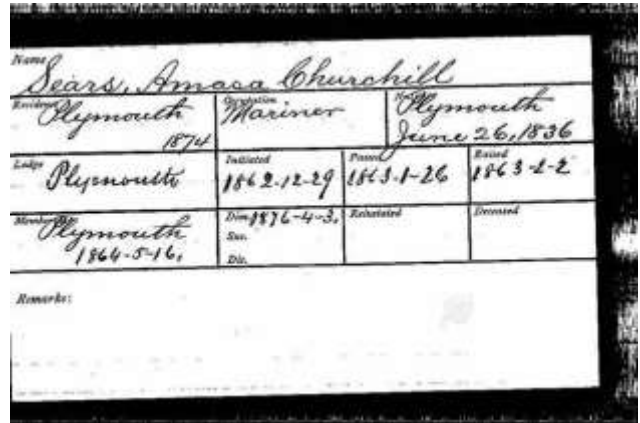 Name
Sears, Amasa Churchill
Residence Plymouth 1874
Occupation Mariner
Plymouth June 26, 1836
Lodge Plymouth
Initiated 1862-12-29
Passed 1863-1-26
Raised 1863-2-2
Membership Plymouth 1864-5-16,
Dim. 1876-4-3,
Sus.
Dis.
Reinstated
Deceased
Remarks: